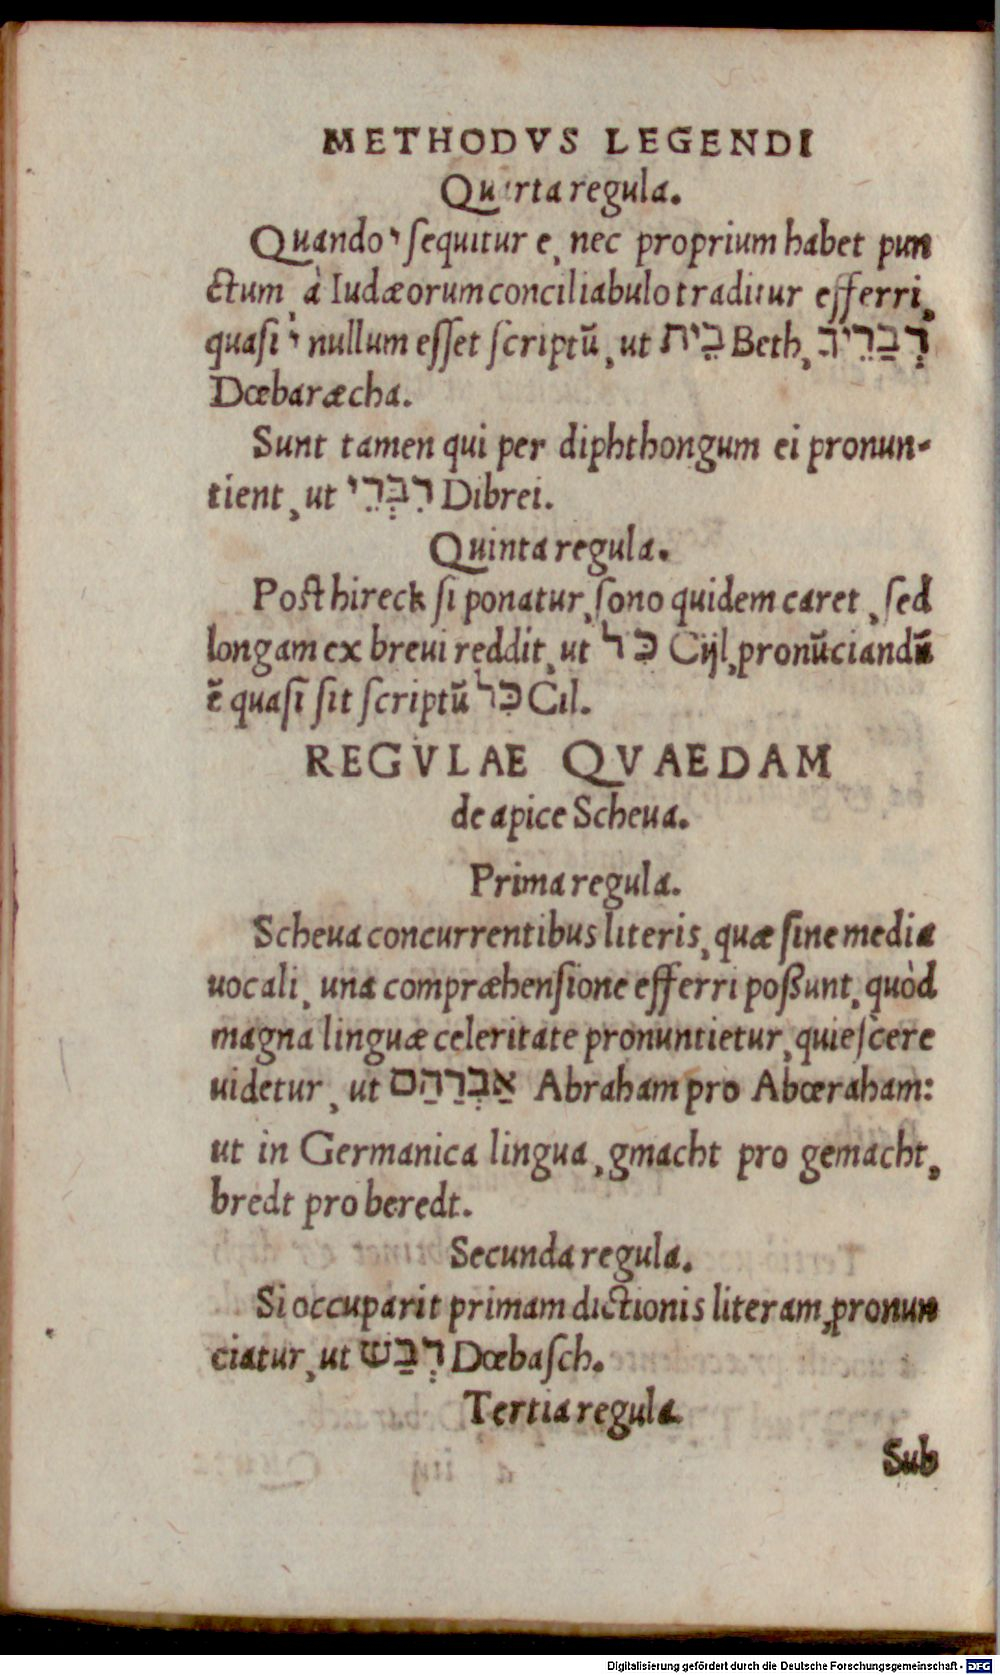 METHODVS LEGENDI
Quarta regula.
Quando י sequitur e, nec proprium habet pun
ctum à Iudæorum conciliabulo traditur efferri,
quasi י nullum esset scriptū, ut בֵית Beth, דְבַרֵיךָ
Dœbaræcha.
Sunt tamen qui per diphthongum ei pronun-
tient, ut דִבְּרֵי Dibrei.
Quinta regula.
Post hireck si ponatur, sono quidem caret, sed
longam ex breui reddit, ut כִּ ל Cijl, pronūciandū
ē quasi sit scriptū כִּל Cil.
REGVLAE QVAEDAM
de apice Scheua.
Prima regula.
Scheua concurrentibus literis, quæ sine media
uocali, una compræhensione efferri poßunt, quòd
magna linguæ celeritate pronuntietur, quiescere
uidetur, ut אַבְרַהַם Abraham pro Abœraham:
ut in Germanica lingua, gmacht pro gemacht,
bredt pro beredt.
Secunda regula.
Si occuparit primam dictionis literam, pronun
ciatur, ut דְבַש Dœbasch.
Tertia regula
Sub
Digitalisierung gefördert durch die Deutsche Forschungsgemeinschaft - DFG